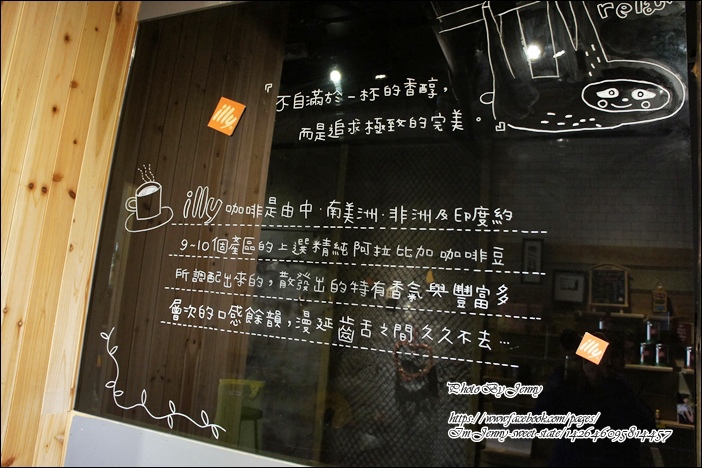 relax
『不自滿於一杯的香醇，
而是追求極致的完美。』
illy
illy咖啡是由中.南美洲.非洲及印度約
9-10個產區的上選精純阿拉比加咖啡豆
所調配出來的，散發出的特有香氣與豐富多
層次的口感餘韻，漫延齒舌之間久久不去…
illy
Photo By Jenny
https://www.facebook.com/pages/
Im-Jenny-sweet-state/142646095814457